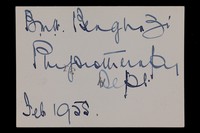 Bmh. Benghazi
Physiotherapy
Dept
Feb 1955.